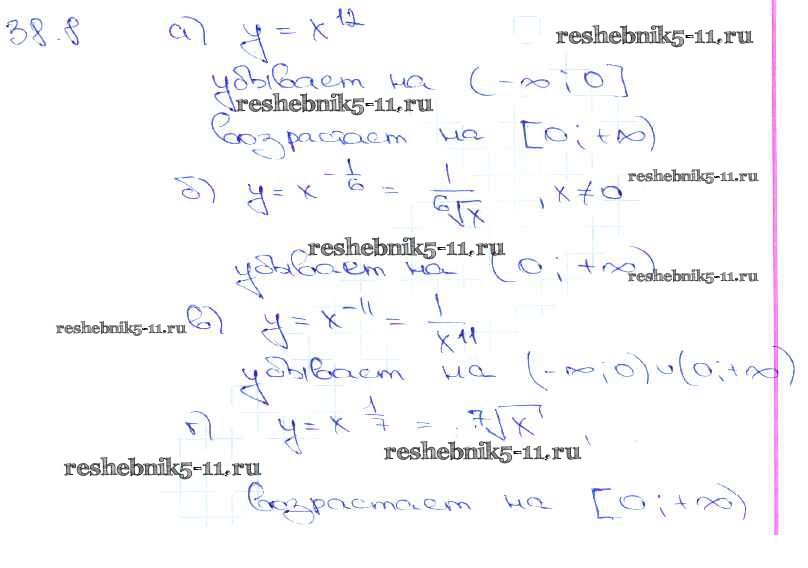 38.8 а) y = x^12
reshebnik5-11.ru
убывает на (-∞; 0]
reshebnik5-11.ru
возрастает на [0; +∞)
б) y = x^(-1/6) = 1/⁶√x , x ≠ 0
reshebnik5-11.ru
reshebnik5-11.ru
убывает на (0; +∞)
reshebnik5-11.ru
reshebnik5-11.ru
в) y = x^-11 = 1/x^11
убывает на (-∞; 0) ∪ (0; +∞)
г) y = x^(1/7) = ⁷√x
reshebnik5-11.ru
reshebnik5-11.ru
возрастает на [0; +∞)